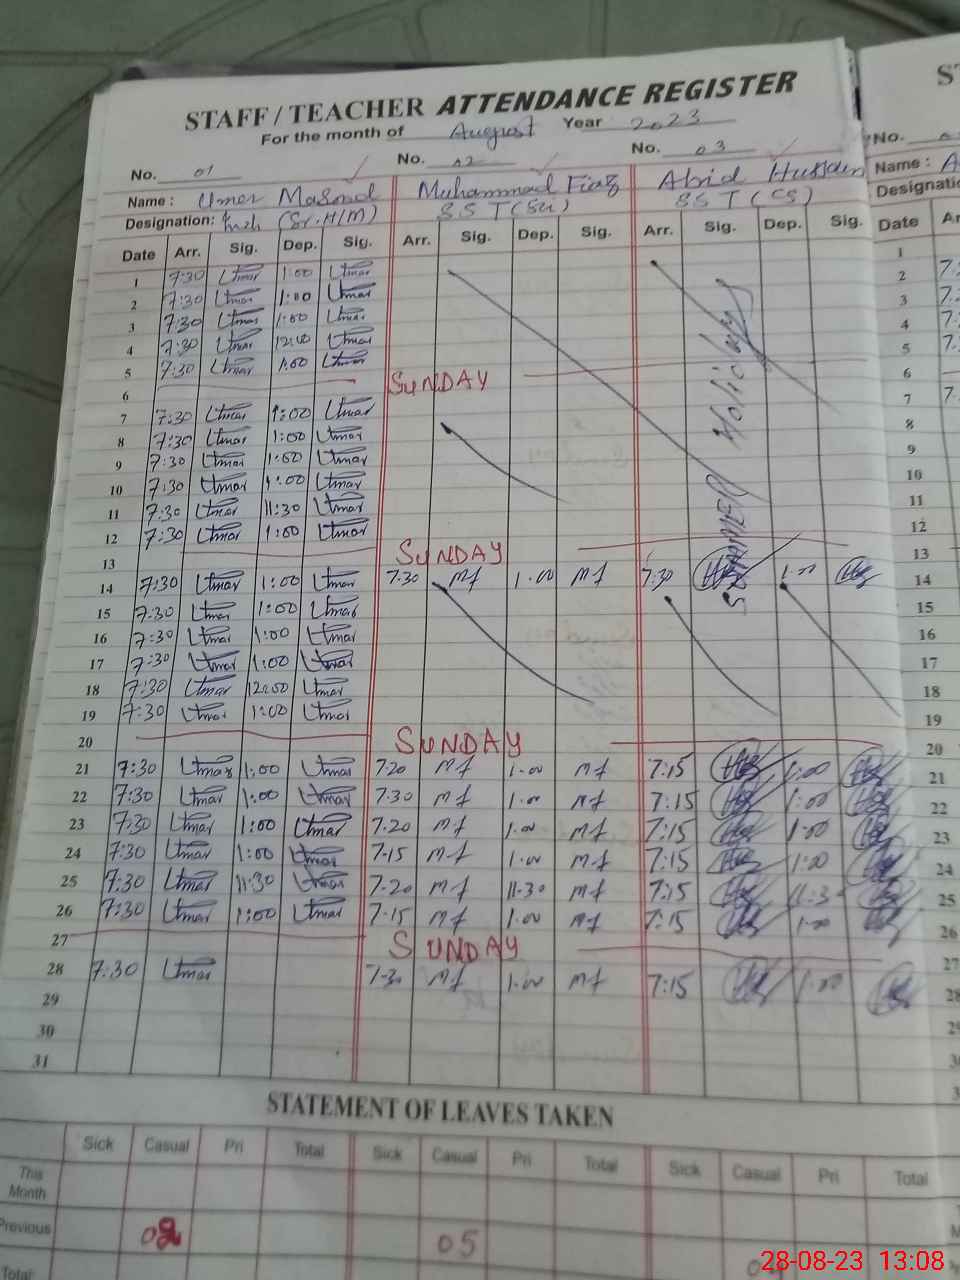 STAFF / TEACHER ATTENDANCE REGISTER
For the month of August Year 2023
No. 01 No. 02 No. 03
Name : Umer Masood Muhammad Fiaz Abid Hussain
Designation: (Sr. H/M) SST (Sci) SST (CS)
Date Arr. Sig. Dep. Sig. Arr. Sig. Dep. Sig. Arr. Sig. Dep. Sig.
1 7:30 Umar 1:00 Umar
2 7:30 Umar 1:00 Umar
3 7:30 Umar 1:00 Umar
4 7:30 Umar 12:00 Umar
5 7:30 Umar 1:00 Umar
6 SUNDAY
7 7:30 Umar 1:00 Umar
8 7:30 Umar 1:00 Umar
9 7:30 Umar 1:00 Umar
10 7:30 Umar 1:00 Umar
11 7:30 Umar 11:30 Umar
12 7:30 Umar 1:00 Umar
SUMMER Holidays
13 SUNDAY
14 7:30 Umar 1:00 Umar 7.30 Mf 1.00 Mf 7:30 1.00
15 7:30 Umar 1:00 Umar
16 7:30 Umar 1:00 Umar
17 7:30 Umar 1:00 Umar
18 7:30 Umar 12:00 Umar
19 7:30 Umar 1:00 Umar
20 SUNDAY
21 7:30 Umar 1:00 Umar 7.20 Mf 1.00 Mf 7:15 1:00
22 7:30 Umar 1:00 Umar 7.30 Mf 1.00 Mf 7:15 1:00
23 7:30 Umar 1:00 Umar 7.20 Mf 1.00 Mf 7:15 1:00
24 7:30 Umar 1:00 Umar 7-15 Mf 1.00 Mf 7:15 1:00
25 7:30 Umar 11:30 Umar 7-20 Mf 11-30 Mf 7:15 11:30
26 7:30 Umar 1:00 Umar 7-15 Mf 1.00 Mf 7:15 1:00
27 SUNDAY
28 7:30 Umar 7-30 Mf 1.00 Mf 7:15 1:00
29
30
31
STATEMENT OF LEAVES TAKEN
Sick Casual Pri Total Sick Casual Pri Total Sick Casual Pri Total
This Month
Previous 02 05
Total
No.
Name : A
Date
1
2
3
4
5
6
7
8
9
10
11
12
13
14
15
16
17
18
19
20
21
22
23
24
25
26
27
28
28-08-23 13:08